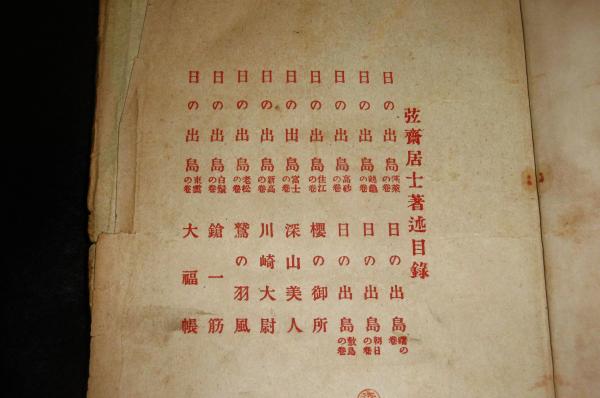 弦齋居士著述目錄
日の出島 蓬萊の卷
日の出島 鶴龜の卷
日の出島 高砂の卷
日の出島 住江の卷
日の出島 富士の卷
日の出島 新高の卷
日の出島 老松の卷
日の出島 白鬚の卷
日の出島 東雲の卷
日の出島 曙の卷
日の出島 朝日の卷
日の出島 敷島の卷
櫻の御所
深山美人
川崎大尉
鷲の羽風
鎗一筋
大福帳